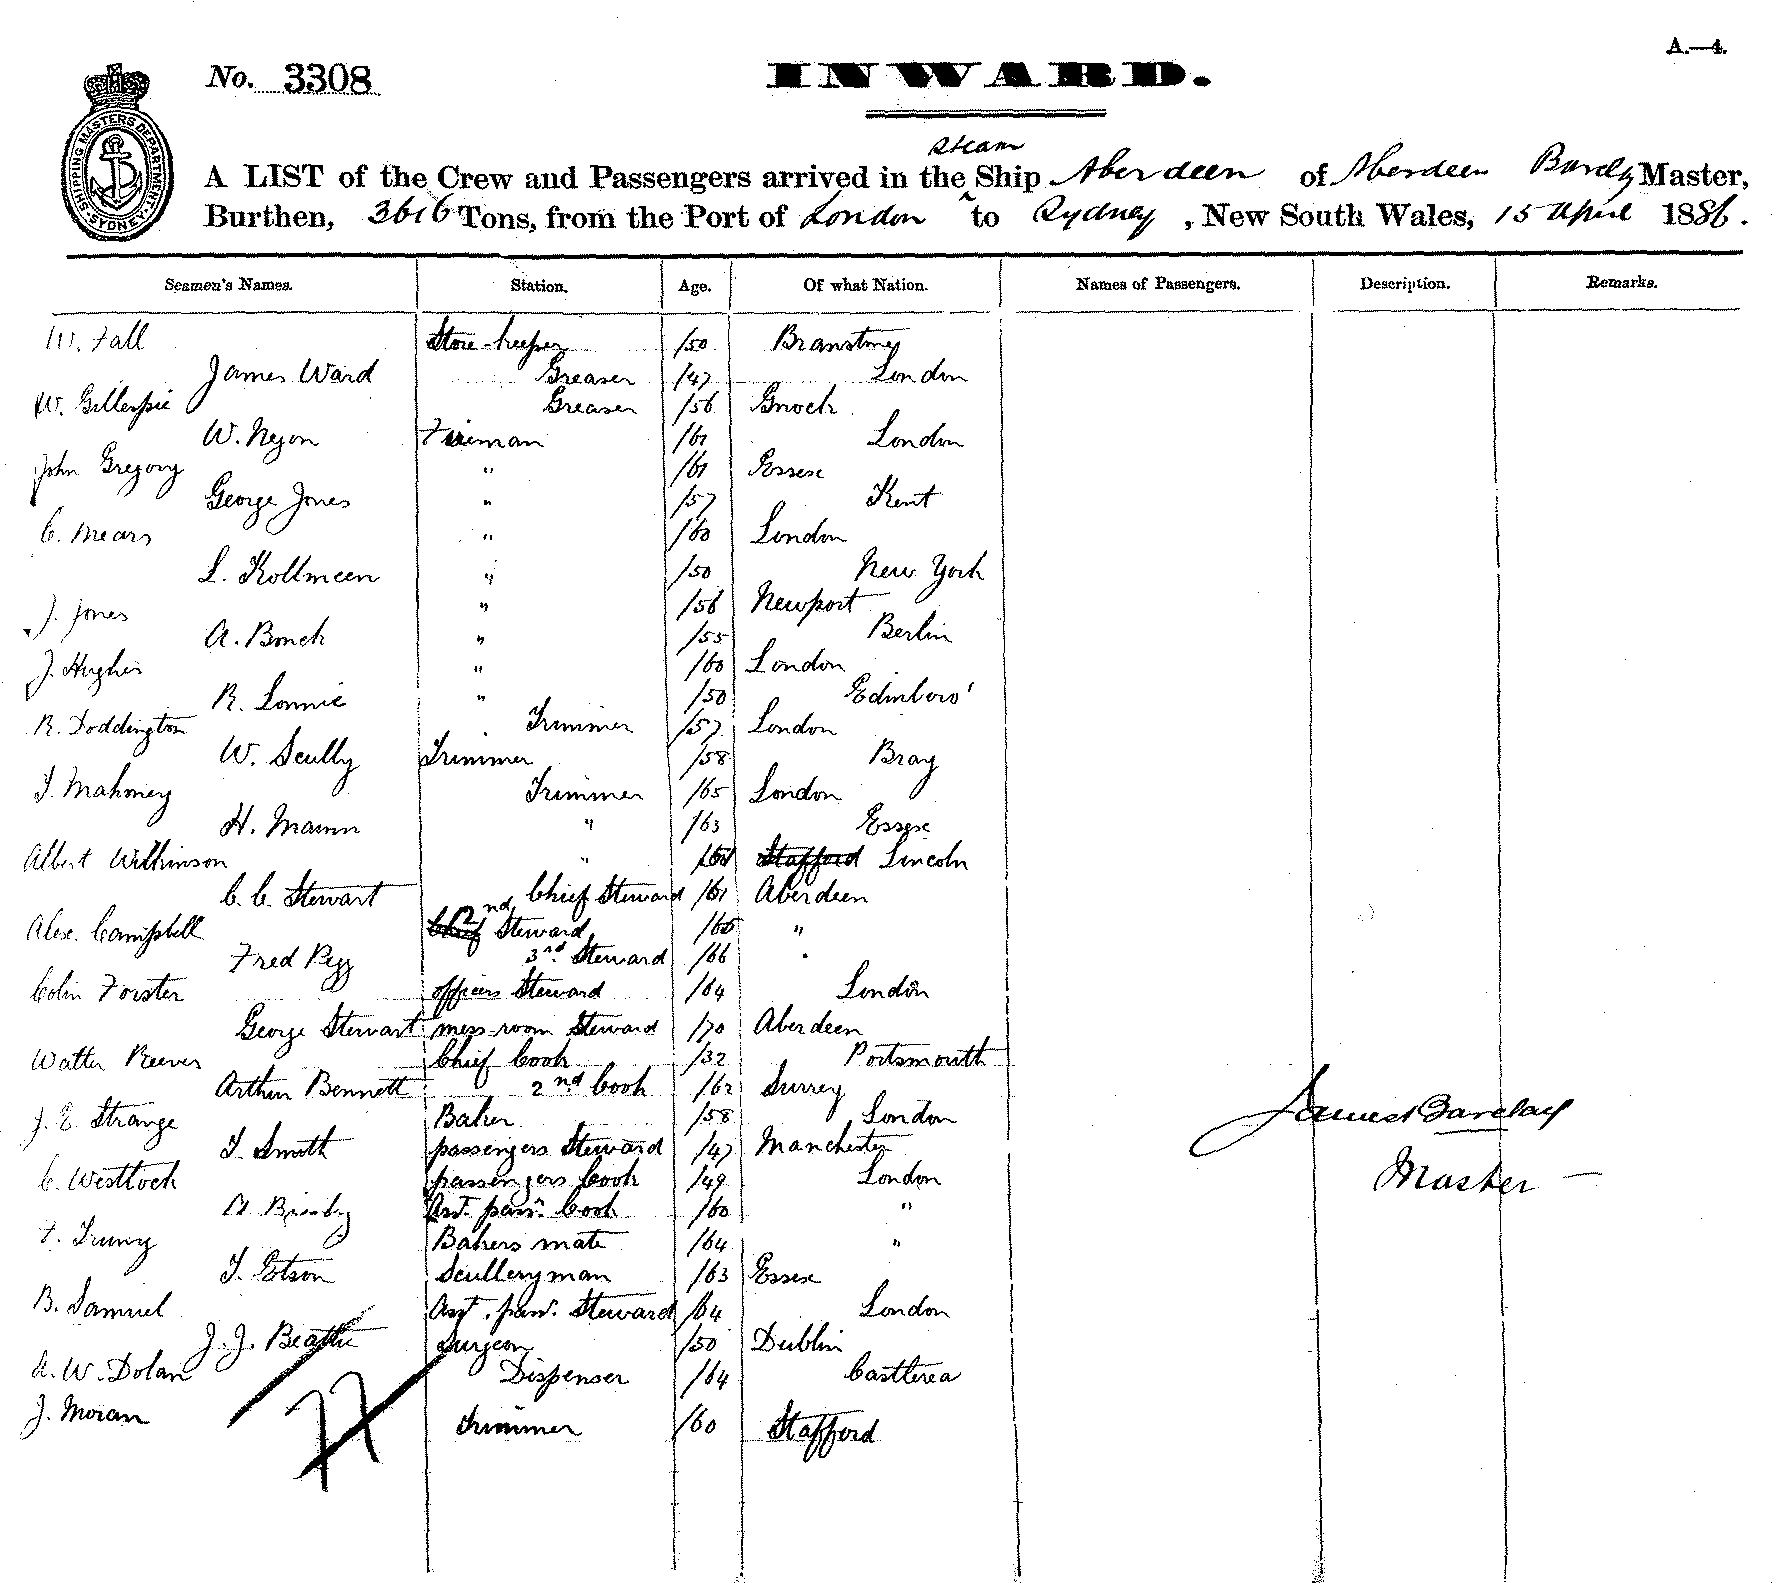 A.—4.
No. 3308
INWARD.
SHIPPING MASTERS DEPARTMENT SYDNEY
Steam
A LIST of the Crew and Passengers arrived in the Ship Aberdeen of Aberdeen Master,
Burthen, 3616 Tons, from the Port of London to Sydney, New South Wales, 15 April 1886.
Seamen's Names. Station. Age. Of what Nation. Names of Passengers. Description. Remarks.
W. Fall Store-keeper /50
James Ward Greaser /47 London
W. Gillespie Greaser /56
W. Nyon Fireman /61 London
John Gregory " /61 Essex
George Jones " /57 Kent
C. Mears " /60 London
L. Kollmeen " /50 New York
J. Jones " /56 Newport
A. " /55 Berlin
J. Hughes " /60 London
R. Lonnie " /50 Edinboro'
R. Doddington Trimmer /57 London
W. Scully Trimmer /58 Bray
T. Mahoney Trimmer /65 London
H. Mann " /63 Essex
Albert Wilkinson " Stafford Lincoln
C. C. Stewart Chief Steward /61 Aberdeen
Alex. Campbell Chief 2nd Steward /65 "
Fred Pegg 3rd Steward /66 "
Colin Forster officers Steward /64 London
George Stewart mess-room Steward /70 Aberdeen
Walter Reeves Chief Cook /32 Portsmouth
Arthur Bennett 2nd Cook /62 Surrey
J. E. Strange Baker /58 London
T. Smith passengers Steward /47 Manchester
C. Westlock passengers Cook /49 London
Ast. pass. Cook /60 "
F. Bakers mate /64 "
T. Etson Sculleryman /63 Essex
B. Samuel Ast. pass. Steward /64 London
J. J. Beattie Surgeon /50 Dublin
A. W. Dolan Dispenser /64 Castlerea
J. Moran Trimmer /60 Stafford
77
James Barclay
Master